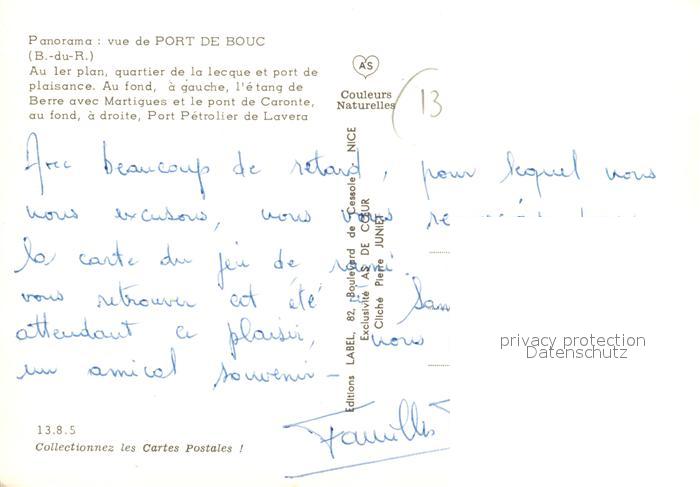 Panorama : vue de PORT DE BOUC
(B.-du-R.)
Au 1er plan, quartier de la lecque et port de
plaisance. Au fond, à gauche, l'étang de
Berre avec Martigues et le pont de Caronte,
au fond, à droite, Port Pétrolier de Lavera
AS
Couleurs
Naturelles
13
Avec beaucoup de retard, pour lequel nous
nous excusons, nous vous
la carte du jeu de rami.
vous retrouver cet été à San
attendant ce plaisir, nous
un amical souvenir -
Familles
Editions LABEL, 82, Boulevard de Cessole, NICE
Exclusivité AS DE CŒUR
Cliché Pierre JUNIET
13.8.5
Collectionnez les Cartes Postales !
privacy protection
Datenschutz